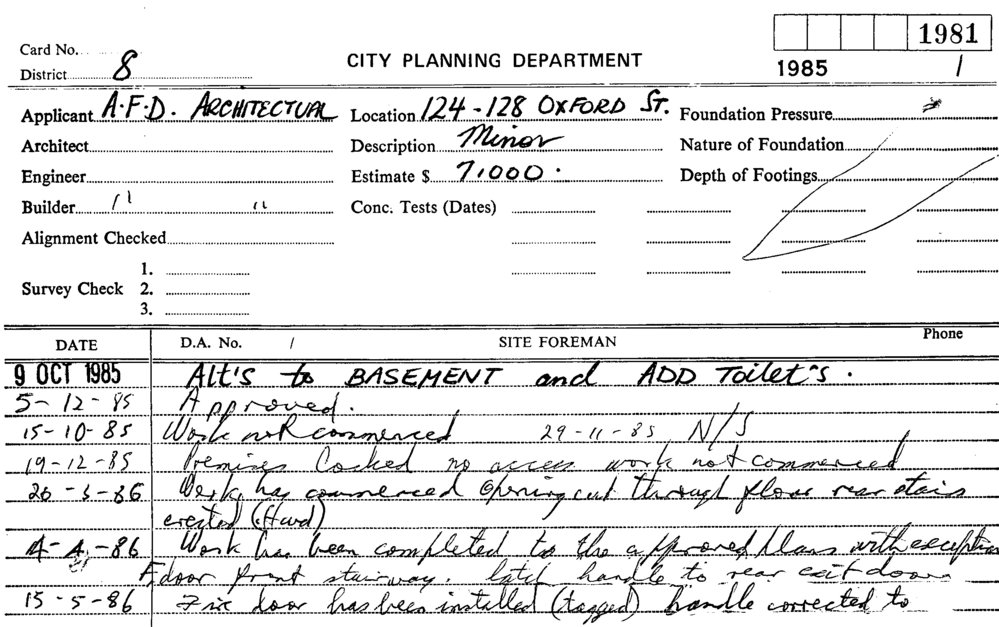 1981
Card No.
CITY PLANNING DEPARTMENT
1985 /
District 8
Applicant A.F.D. ARCHITECTUAL Location 124-128 OXFORD ST. Foundation Pressure
Architect Description Minor Nature of Foundation
Engineer Estimate $ 7,000. Depth of Footings
Builder " " Conc. Tests (Dates)
Alignment Checked
1.
Survey Check 2.
3.
DATE D.A. No. / SITE FOREMAN Phone
9 OCT 1985 Alt's to BASEMENT and ADD Toilet's.
5-12-85 Approved.
15-10-85 Work not commenced 29-11-85 N/S
19-12-85 Premises Locked no access work not commenced
26-3-86 Work has commenced opening cut through floor rear stairs
erected
4-4-86 Work has been completed to the approved plans with exception
F.door front stairway. latch handle to rear exit door
15-5-86 Fire door has been installed (tagged) handle corrected to